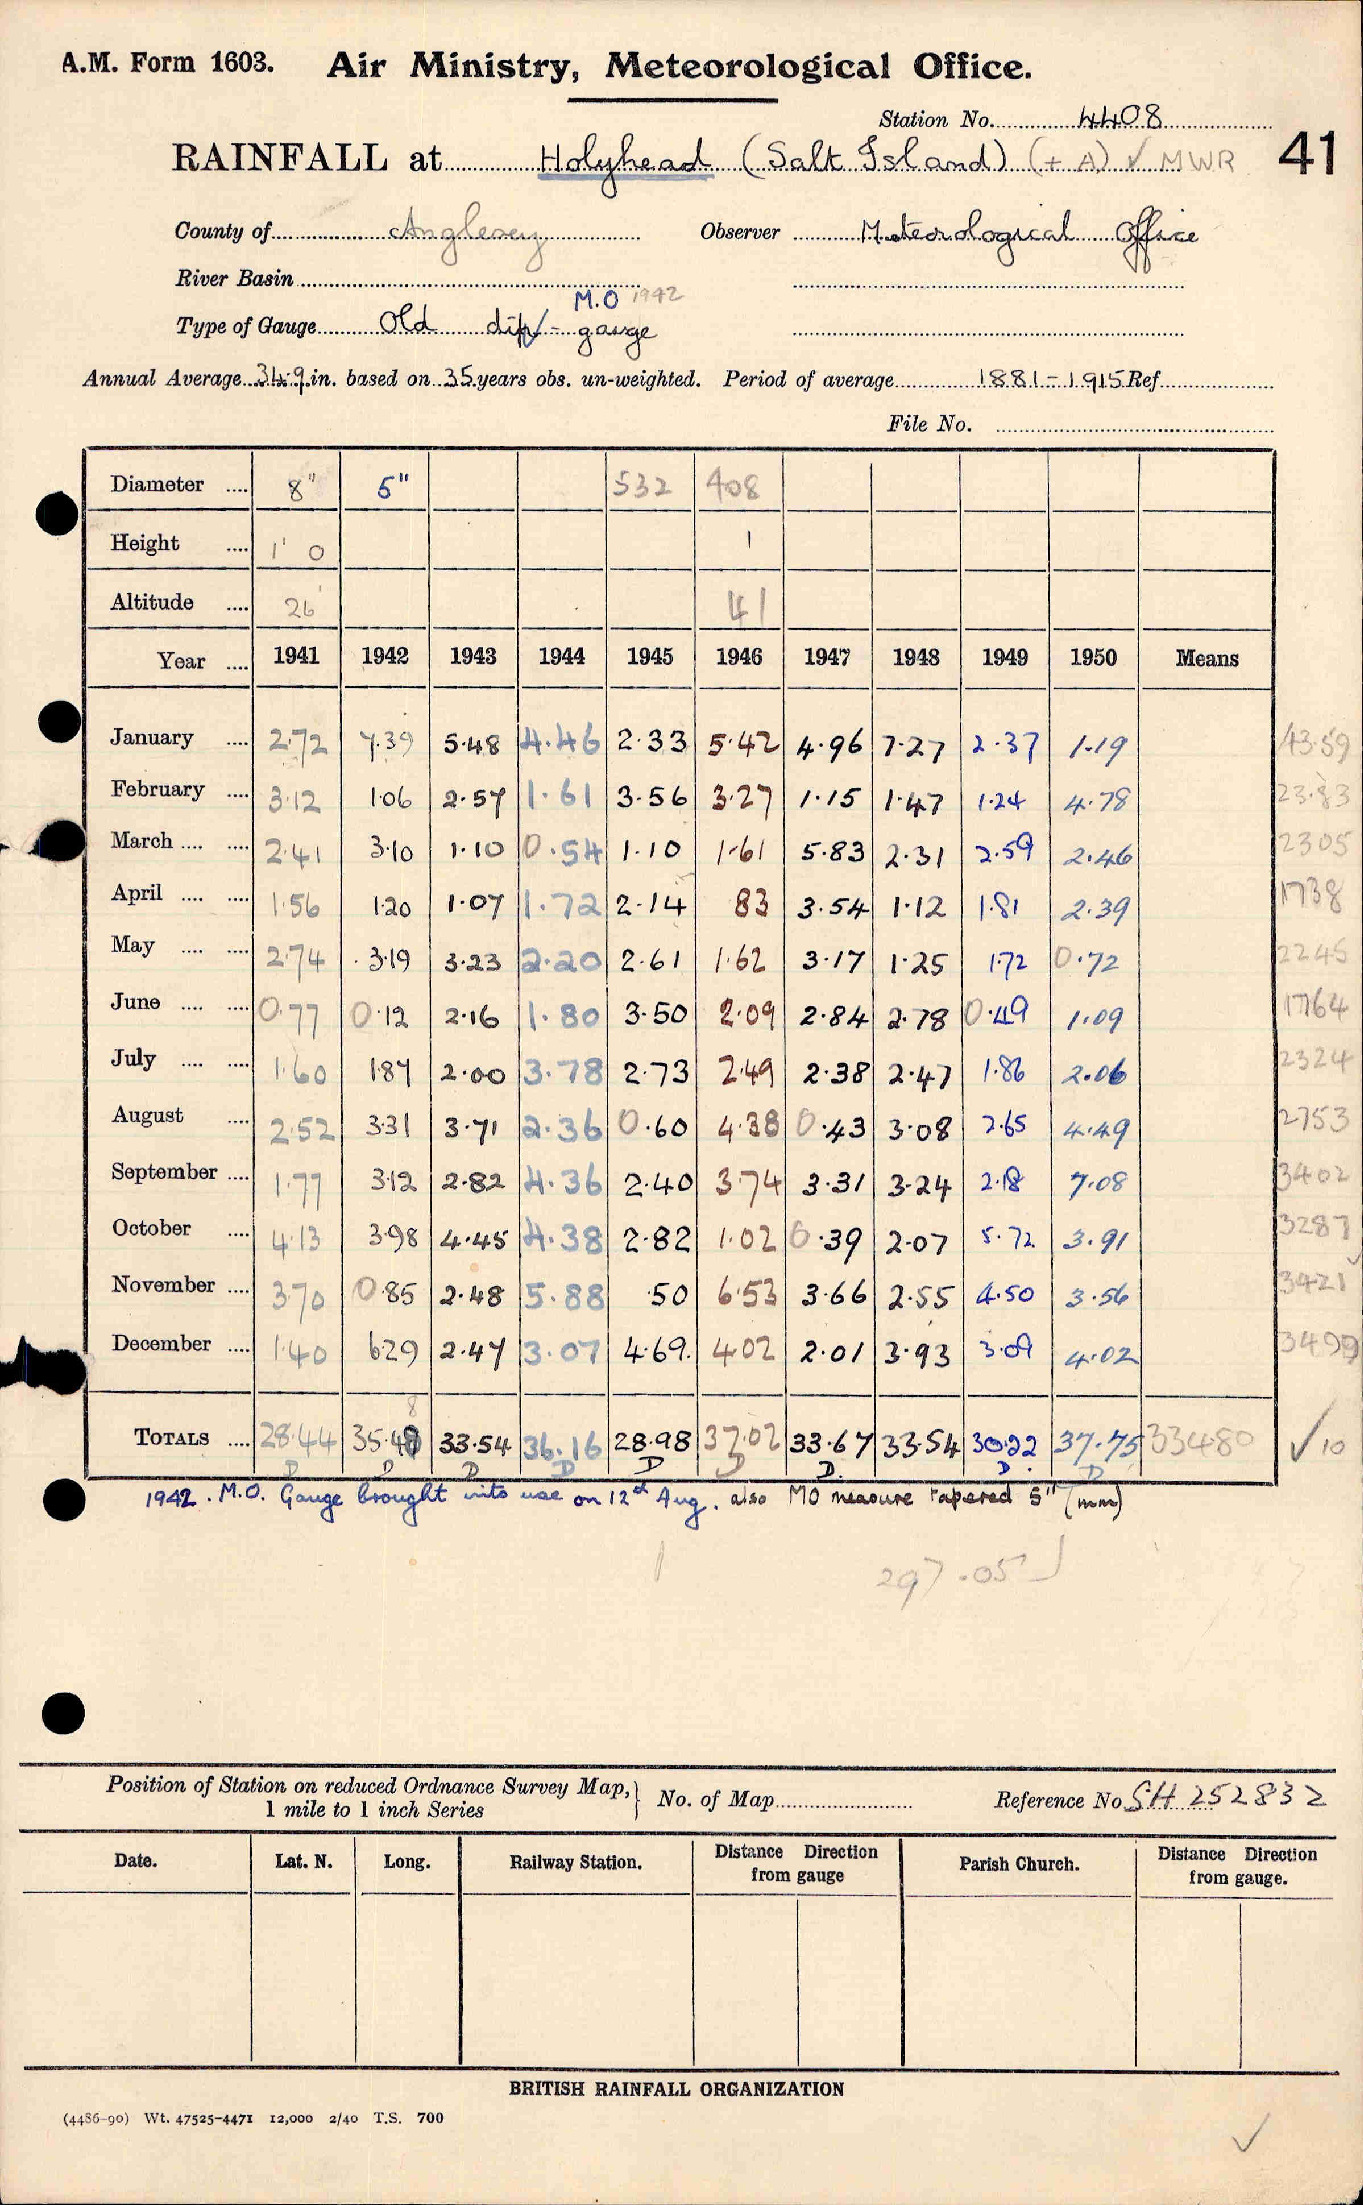 A.M. Form 1603. Air Ministry, Meteorological Office.
Station No. 4408
RAINFALL at Holyhead (Salt Island) (+ A) ✓ MWR 41
County of Anglesey Observer Meteorological Office
River Basin
M.O 1942
Type of Gauge Old dip - gauge
Annual Average 34.9 in. based on 35 years obs. un-weighted. Period of average 1881-1915 Ref.
File No.
Diameter .... 8" 5" 532 408
Height .... 1' 0 1
Altitude .... 26' 41
Year .... 1941 1942 1943 1944 1945 1946 1947 1948 1949 1950 Means
January .... 2.72 7.39 5.48 4.46 2.33 5.42 4.96 7.27 2.37 1.19 43.59
February .... 3.12 1.06 2.57 1.61 3.56 3.27 1.15 1.47 1.24 4.78 23.83
March .... .... 2.41 3.10 1.10 0.54 1.10 1.61 5.83 2.31 2.59 2.46 2305
April .... .... 1.56 1.20 1.07 1.72 2.14 83 3.54 1.12 1.81 2.39 1738
May .... .... 2.74 3.19 3.23 2.20 2.61 1.62 3.17 1.25 1.72 0.72 2245
June .... .... 0.77 0.12 2.16 1.80 3.50 2.09 2.84 2.78 0.49 1.09 1764
July .... .... 1.60 1.87 2.00 3.78 2.73 2.49 2.38 2.47 1.86 2.06 2324
August .... 2.52 3.31 3.71 2.36 0.60 4.38 0.43 3.08 2.65 4.49 2753
September .... 1.77 3.12 2.82 4.36 2.40 3.74 3.31 3.24 2.18 7.08 3402
October .... 4.13 3.98 4.45 4.38 2.82 1.02 0.39 2.07 5.72 3.91 3287
November .... 3.70 0.85 2.48 5.88 .50 6.53 3.66 2.55 4.50 3.56 3421
December .... 1.40 6.29 2.47 3.07 4.69 4.02 2.01 3.93 3.09 4.02 3499
8
TOTALS .... 28.44 35.48 33.54 36.16 28.98 37.02 33.67 33.54 30.22 37.75 33480 ✓ 10
D D D D D D D. D. D
1942. M.O. Gauge brought into use on 12th Aug. also MO measure tapered 5" (mm)
297.05
Position of Station on reduced Ordnance Survey Map, } No. of Map Reference No. SH 252832
1 mile to 1 inch Series
Date. Lat. N. Long. Railway Station. Distance Direction from gauge Parish Church. Distance Direction from gauge.
BRITISH RAINFALL ORGANIZATION
(4486-90) Wt. 47525-4471 12,000 2/40 T.S. 700
✓